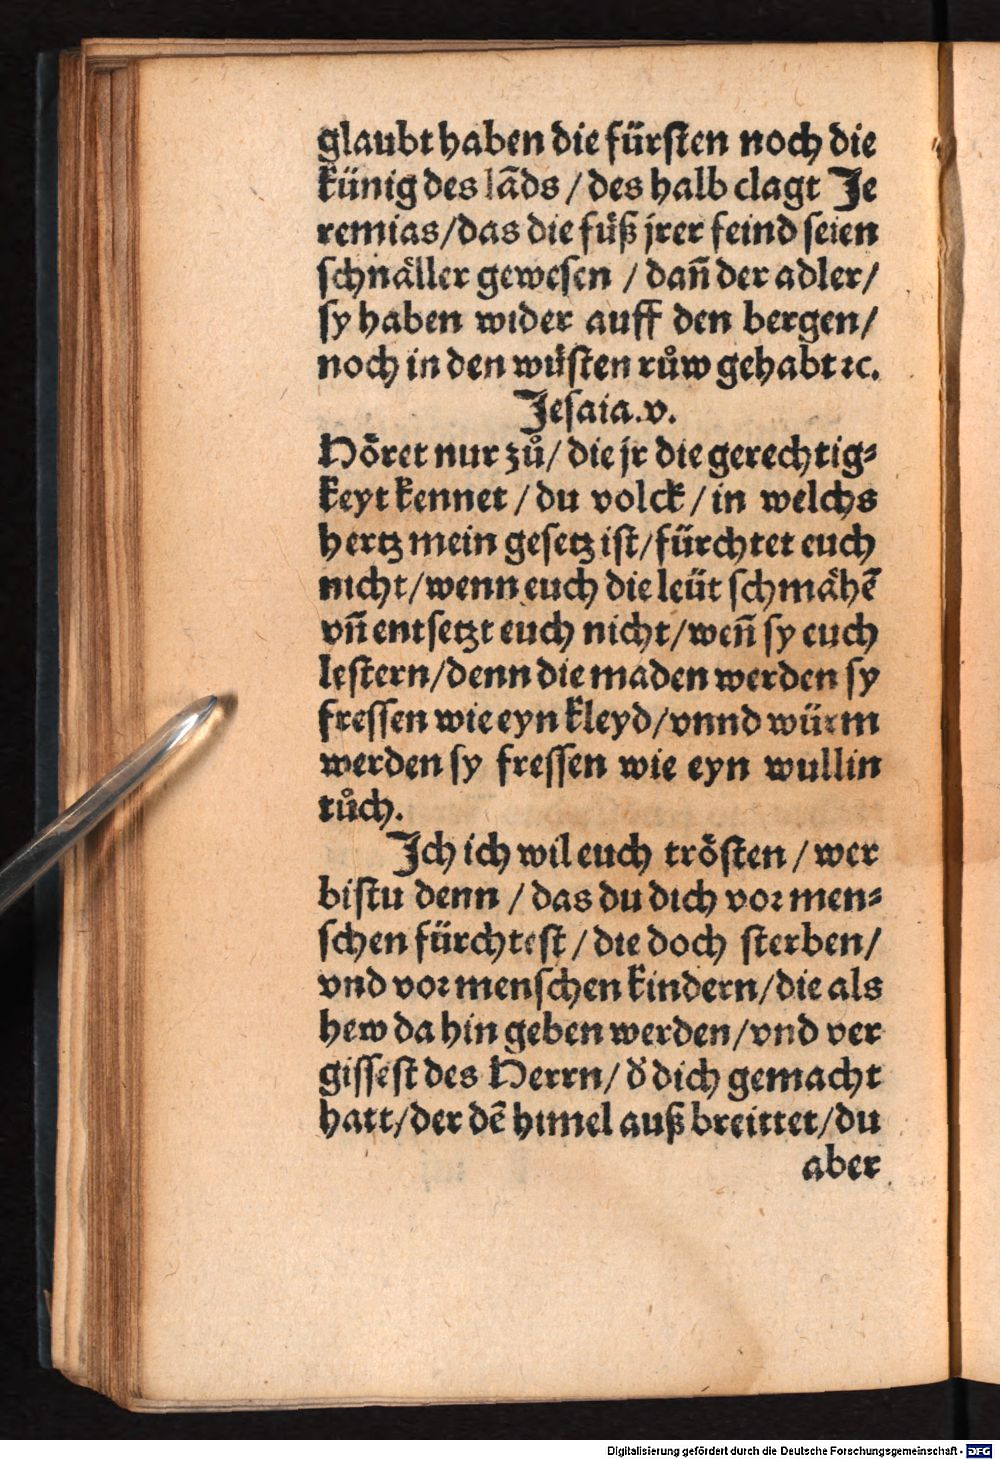 glaubt haben die fürsten noch die
künig des lãds / des halb clagt Je
remias/das die fuͤß jrer feind seien
schnaͤller gewesen / dañ der adler/
sy haben wider auff den bergen/
noch in den wuͤsten ruͦw gehabt ⁊c.
Jesaia.v.
Hoͤret nur zuͦ/ die jr die gerechtig⸗
keyt kennet / du volck / in welchs
hertz mein gesetz ist/fürchtet euch
nicht/wenn euch die leüt schmaͤhẽ
vñ entsetzt euch nicht/weñ sy euch
lestern/denn die maden werden sy
fressen wie eyn kleyd/vnnd würm
werden sy fressen wie eyn wullin
tuͦch.
Ich ich wil euch troͤsten / wer
bistu denn / das du dich vor men⸗
schen fürchtest / die doch sterben/
vnd vor menschen kindern/die als
hew da hin geben werden/vnd ver
gissest des Herrn/ d̕ dich gemacht
hatt/der dẽ himel auß breittet/du
aber
Digitalisierung gefördert durch die Deutsche Forschungsgemeinschaft - DFG